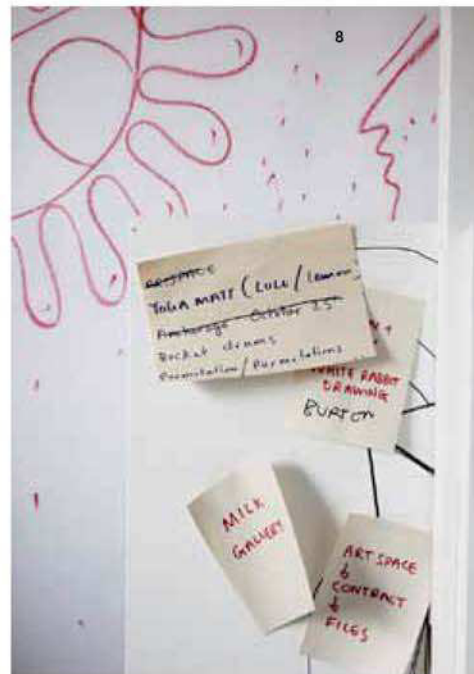 8
ARTSPACE
YOGA MATT (LULU / Lemon
Anchorage October 25
Bucket drums
Permutation / Permutations
WHITE RABBIT
DRAWING
BURTON
MILK
GALLERY
ART SPACE
↓
CONTRACT
↓
FILES